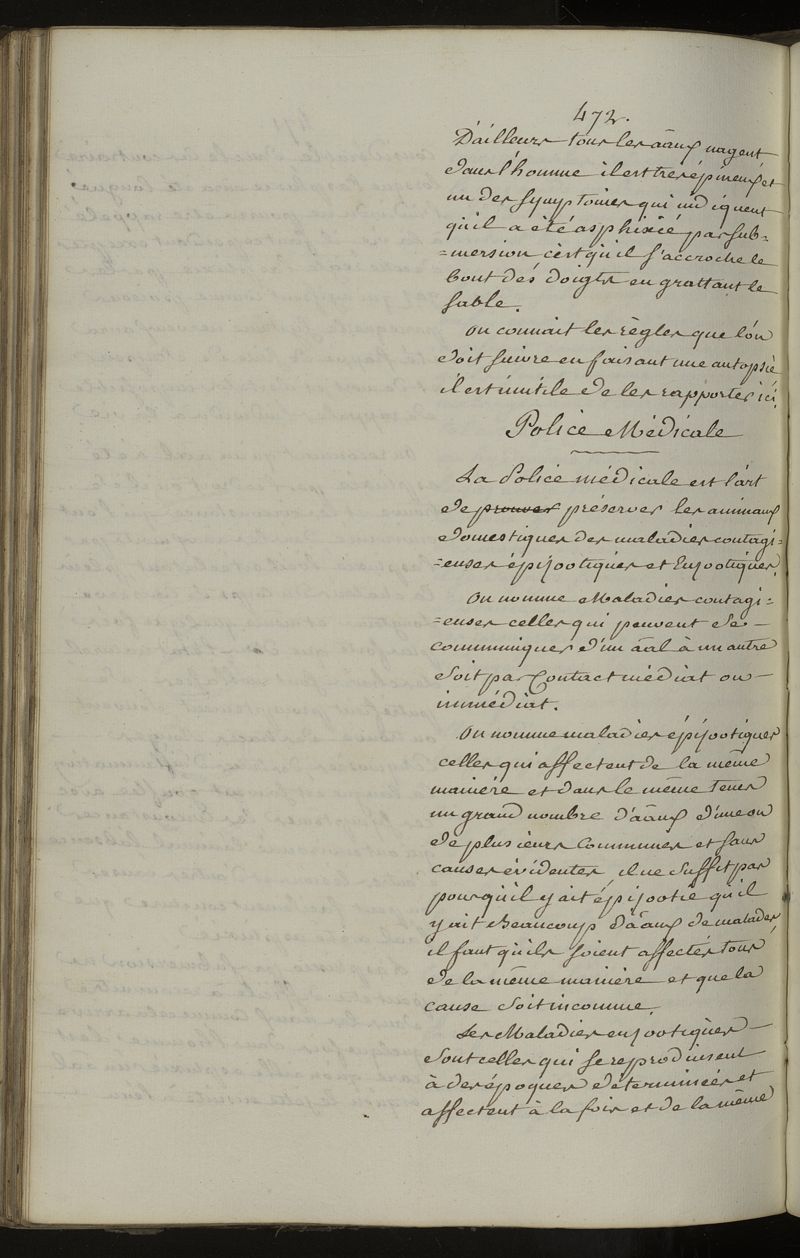 472.
D'ailleurs tous les aãux nagent
dans l'homme il est très épineux et
un des symptomes qui indiquent
qu'il a été asphixié par sub=
=mersion c'est qu'il s'accroche le
bout dés doigts en grattant le
sable.
On connait les règles que l'on
doit suivre en faisant une autopsie
il est inutile de les rapporter ici.
Police Médicale
La Police médicale est l'art
de prouver préserver les animaux
domestiques des maladies contagi=
=euses épizootiques et Enzootiques.
On nomme Maladies contagi=
=euses celles qui peuvent se
communiquer d'un aãl à un autre
soit par Contact médiat ou
immédiat.
On nomme maladies épizootiques
celles qui affectent de la même
manière et dans le même tems
un grand nombre d'aãux d'une ou
de plusieurs Communes et sans
causes évidentes, il ne suffit pas
pour qu'il y ait épizootie qu'il
y ait Beaucoup d'aãux de malades,
il faut qu'ils soient affectés tous
de la même manière et que la
cause soit inconnue.
Les Maladies enzootiques
sont celles qui se reproduisent
à des époques déterminées et
affectent à la fois et de la même